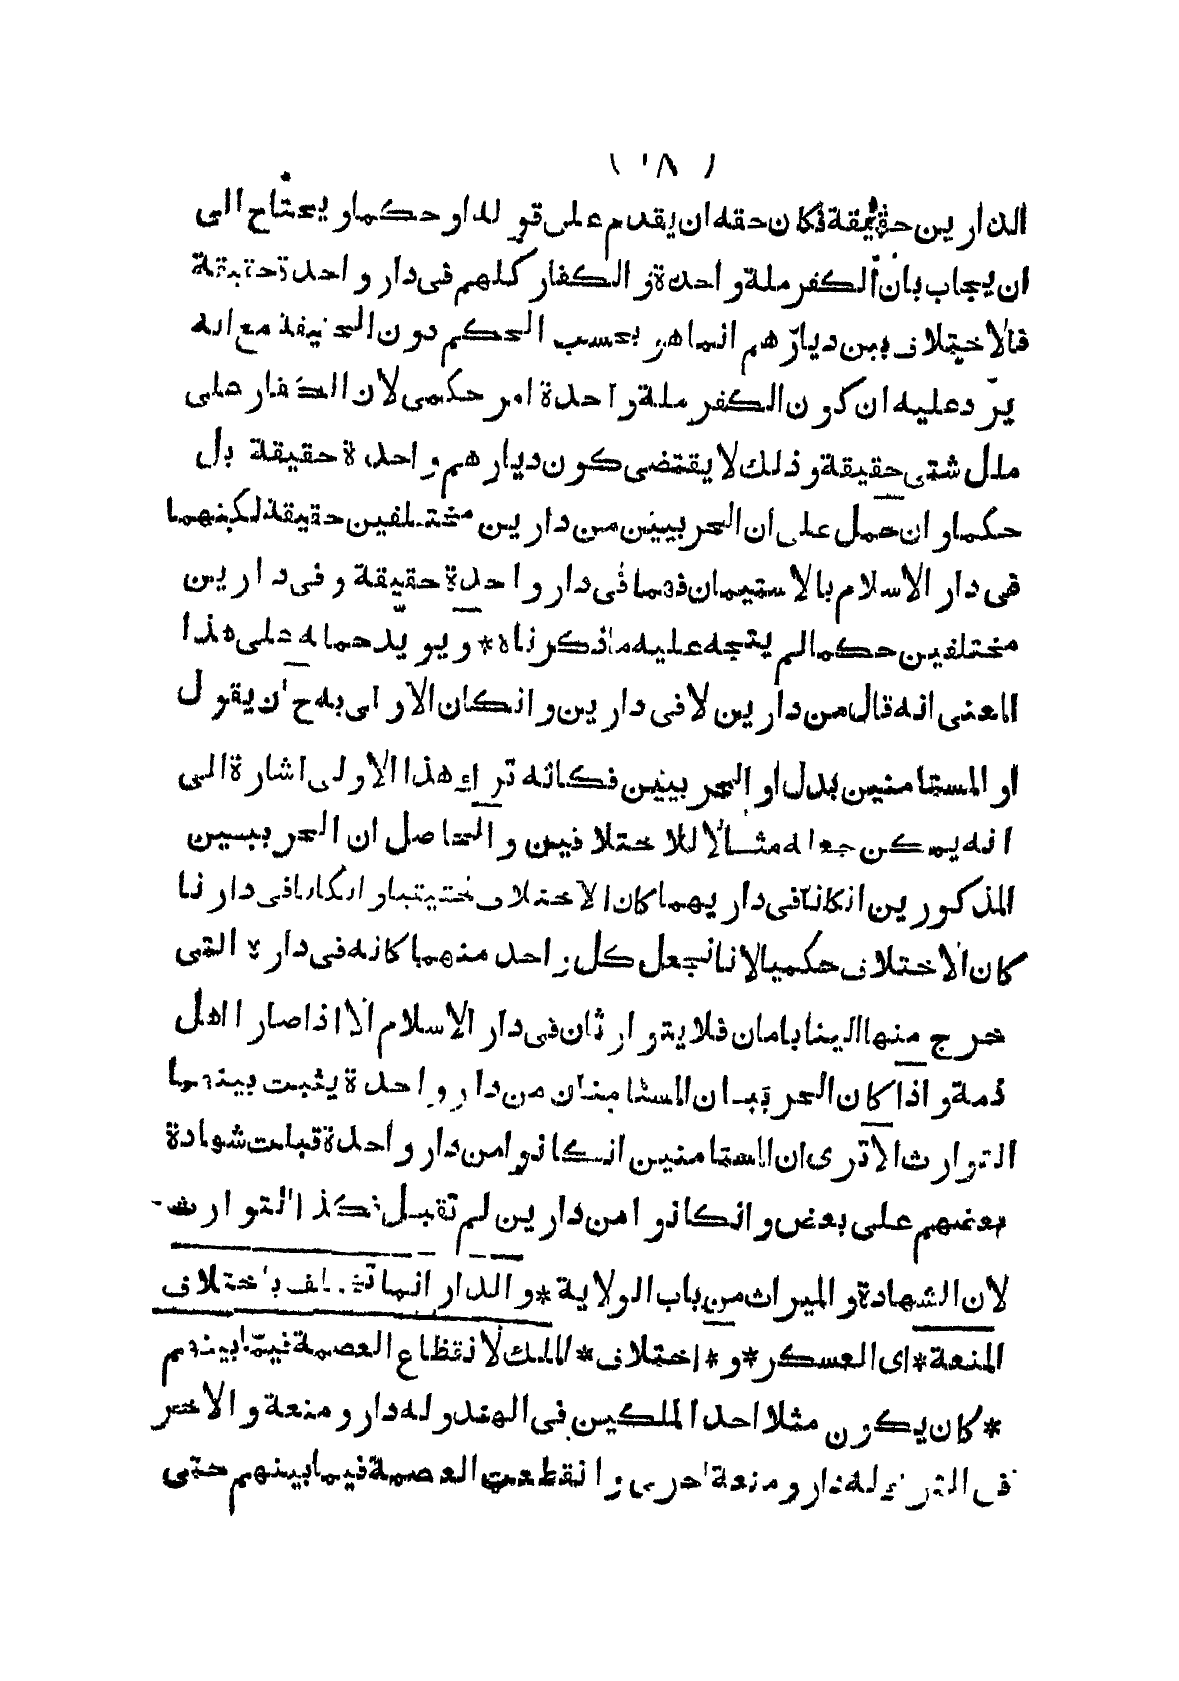 ( ١٨ )
الدارين حقيقة فكان حقه ان يقدم على قوله او حكما او يحتاج الى
ان يجاب بان الكفر ملة واحدة والكفار كلهم فى دار واحدة حقيقة
فالاختلاف بين ديارهم انما هو بحسب الحكم دون الحقيقة مع انه
يرد عليه ان كون الكفر ملة واحدة امر حكمى لان الكفار على
ملل شتى حقيقة وذلك لا يقتضى كون ديارهم واحدة حقيقة بل
حكما وان حمل على ان الحربيين من دارين مختلفين حقيقة لكنهما
فى دار الاسلام بالاستيمان فهما فى دار واحدة حقيقة وفى دارين
مختلفين حكما لم يتجه عليه ما ذكرناه * ويويد حمله على هذا
المعنى انه قال من دارين لا فى دارين وانكان الاولى به ح ان يقول
او المستامنين بدل او الحربيين فكانه ترك هذا الاولى اشارة الى
انه يمكن جعله مثالا للاختلافين والحاصل ان الحربيين
المذكورين انكانا فى داريهما كان الاختلاف حقيقيا وانكانا فى دارنا
كان الاختلاف حكميا لانا نجعل كل واحد منهما كانه فى داره التى
خرج منها الينا بامان فلا يتوارثان فى دار الاسلام الا اذا صارا اهل
ذمة واذا كان الحربيان المستامنان من دار واحدة يثبت بينهما
التوارث الا ترى ان المستامنين انكانوا من دار واحدة قبلت شهادة
بعضهم على بعض وانكانوا من دارين لم تقبل فكذا التوارث
لان الشهادة والميراث من باب الولاية * والدار انما تختلف باختلاف
المنعة * اى العسكر * و * اختلاف * الملك لانقطاع العصمة فيما بينهم
* كان يكون مثلا احد الملكين فى الهند وله دار ومنعة والاخر
فى الترك له دار ومنعة اخرى وانقطعت العصمة فيما بينهم حتى